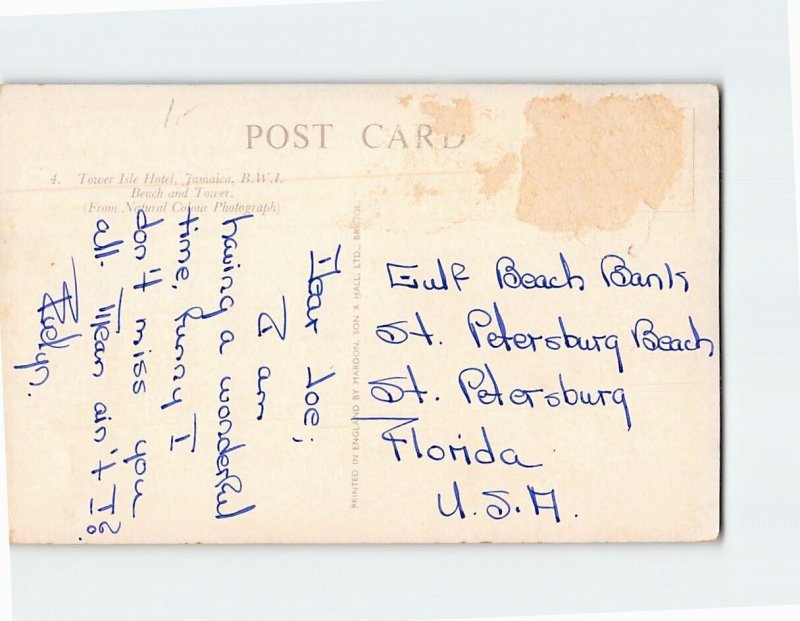 1.-
POST CARD
4. Tower Isle Hotel, Jamaica, B.W.I.
Beach and Tower.
(From Natural Colour Photograph)
Dear Joe;
I am
having a wonderful
time, funny I
don't miss you
all. Mean ain't I?
Evelyn.
PRINTED IN ENGLAND BY MARDON, SON & HALL, LTD., BRISTOL
Gulf Beach Bank
St. Petersburg Beach
St. Petersburg
Florida
U.S.A.